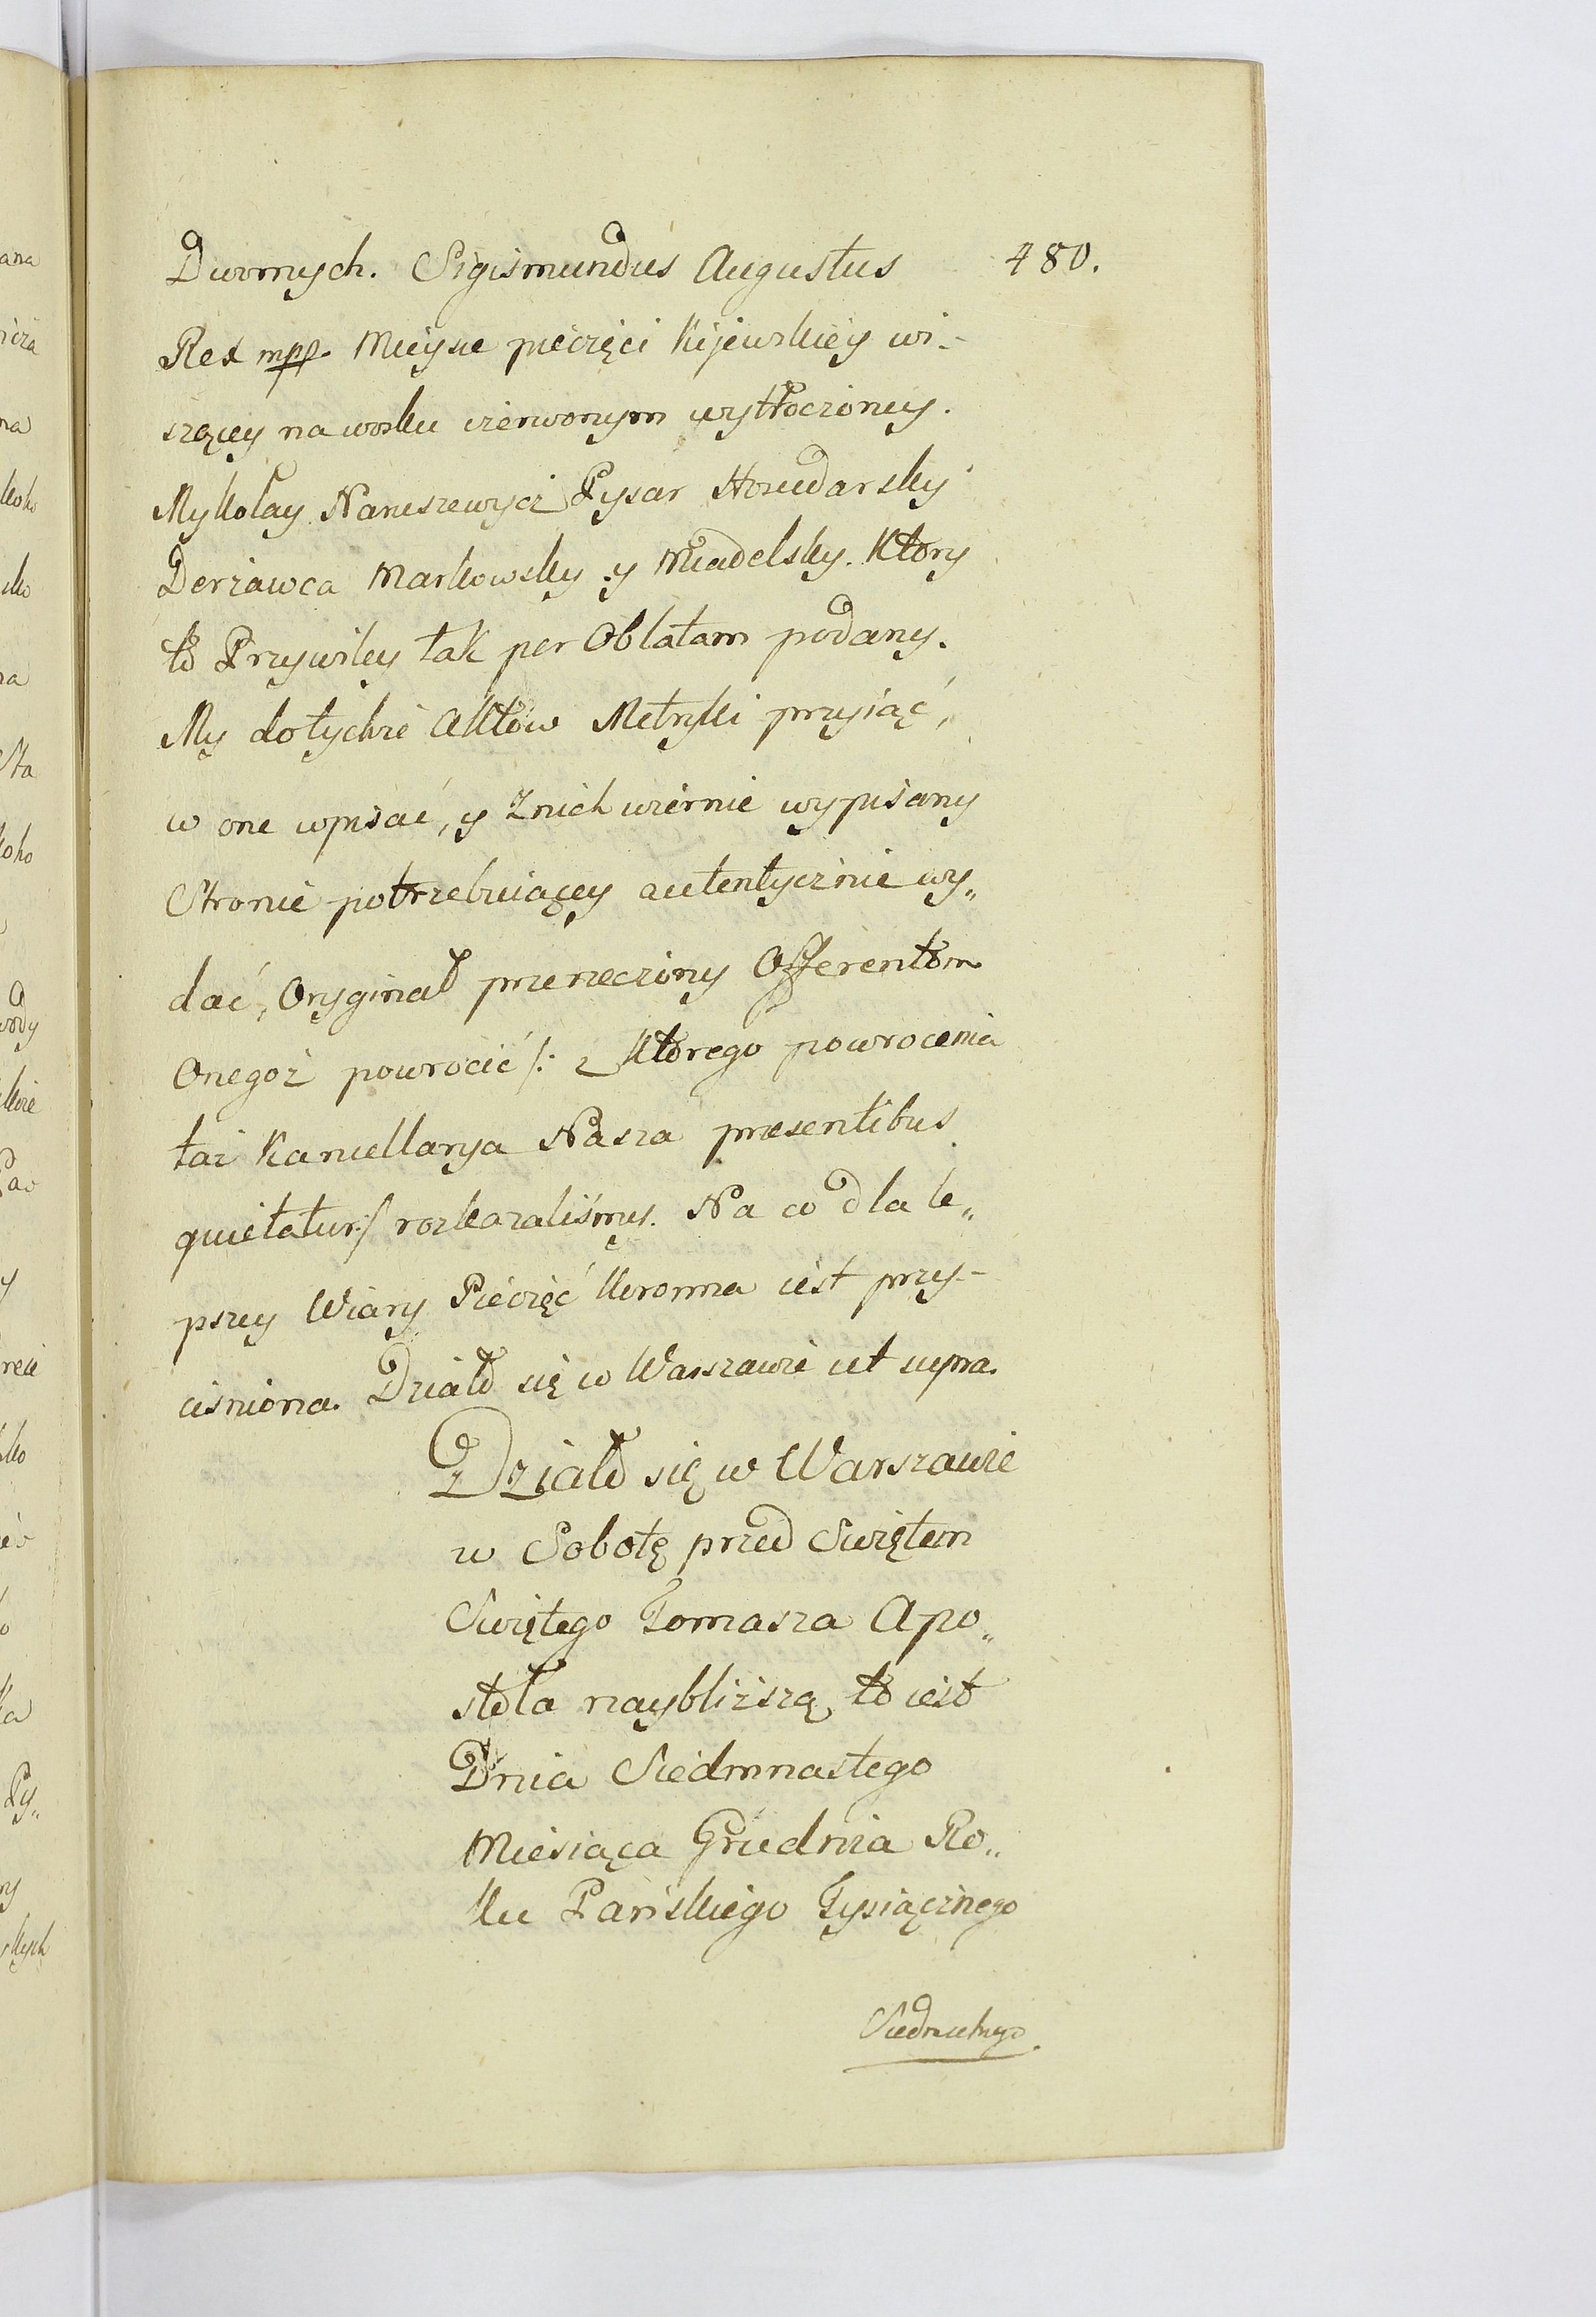 480.
Dwornych. Sigismundus Augustus
Rex mpp. Mieysce pieczęci Kijewskiey wi-
szącey na wosku czerwonym wytłoczoney.
Mykołay Naruszewycz Pysar Hosudarsky
Derżawca Markowsky y Miadelsky. Ktory
to Przywiley tak per Oblatam podany.
My do tychże Aktow Metryki przyiąć,
w one wpisać, y z nich wiernie wypisany
Stronie potrzebuiącey autentycznie wy„
dać, Oryginał przerzeczony Offerentom
Onegoż powrocić /: z ktorego powrocenia
taż Kancellarya Nasza præsentibus
quietatur:/ rozkazaliśmy. Na co dla le„
pszey Wiary Pieczęć Koronna iest przy-
ciśniona. Działo się w Warszawie ut supra.
Działo się w Warszawie
w Sobotę przed Swiętem
Swiętego Tomasza Apo„
stoła naybliższą, to iest
Dnia Siedmnastego
Miesiąca Grudnia Ro„
ku Pańskiego Tysiącznego
Siedmsetnego.